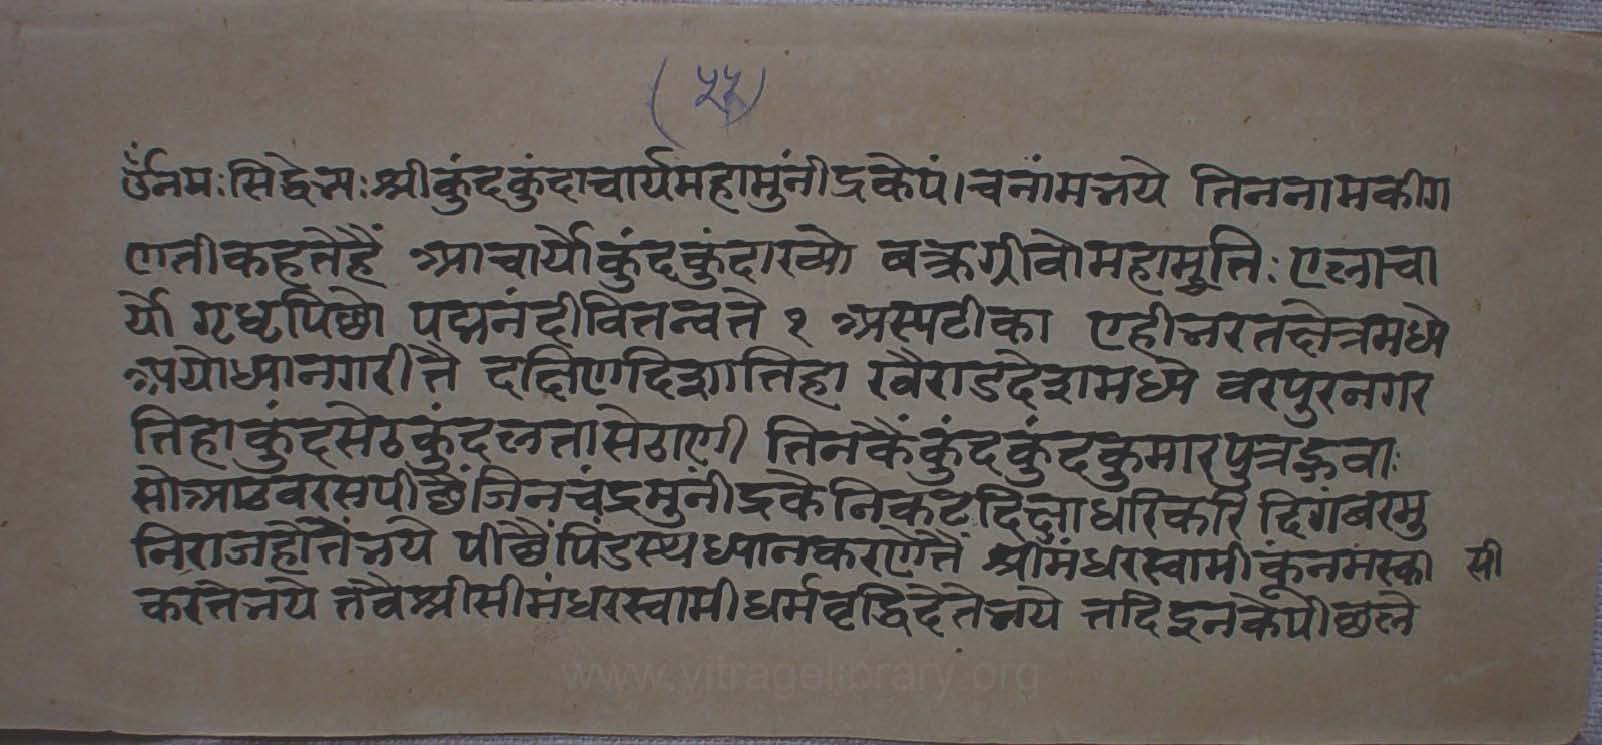 (५५)
ॐनमःसिद्धेभ्यःश्रीकुंदकुंदाचार्यमहामुंनीद्रकेपं।चनांमभये तिननामकीग
णतीकहतेहैं आचार्योकुंदकुंदाख्यो वक्रग्रीवोमहामुनिः एलाचा
र्यो गृध्रपिछो पद्मनंदीवितन्वते १ अस्यटीका एहीभरतक्षेत्रमध्ये
अयोध्यानगरीतै दक्षिणदिशातिहा खैराडदेशमध्ये वरपुरनगर
तिहाकुंदसेठकुंदलतासेठाणी तिनकैंकुंदकुंदकुमारपुत्रहुवाः
सोआठवरसपीछैंजिनचंद्रमुंनीद्रकेनिकटदिक्षाधरिकरि दिगंबरमु
निराजहोंतेंभये पीछैंपिंडस्थध्यानकराणेतें श्रीमंधरस्वामीकूंनमंस्का सी
करतेभये तवैश्रीसीमंधरस्वामीधर्मवृद्धिदेतेभये तदिइनकेपीछले
www.vitragelibrary.org